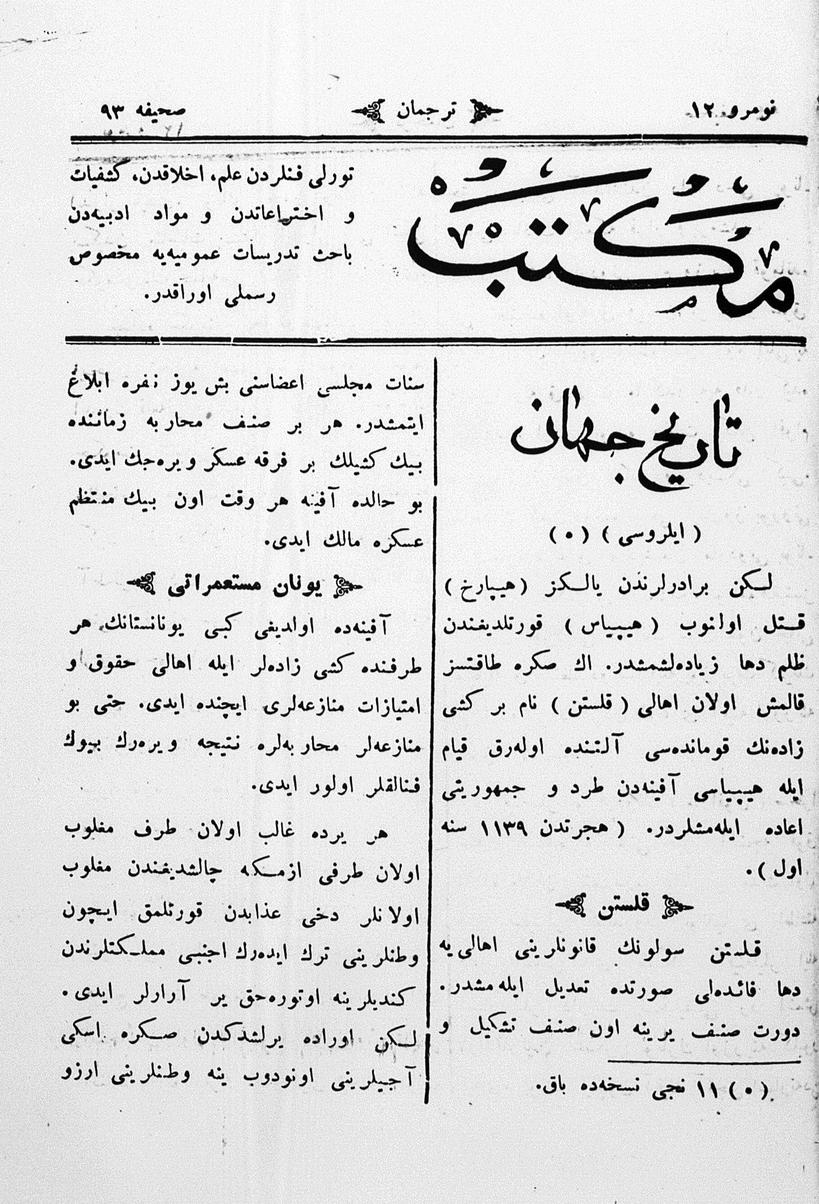 نومرو ۱۲
ترجمان
صحیفه ۹۳
مكتب
تورلی فنلردن علم، اخلاقدن، كشفیات
و اختراعاتدن و مواد ادبیه‌دن
باحث تدریسات عمومیه‌یه مخصوص
رسملی اوراقدر.
تاریخ جهان
( ایلروسی ) ( ٥ )
لـكن برادرلرندن یالـكز ( هیپارخ )
قـتل اولنوب ( هیپیاس ) قورتلدیغندن
ظلم دها زیاده‌لشمشدر. اك صكره طاقتسز
قالمش اولان اهالی ( قلستن ) نام بر كشی
زاده‌نك قوماندەسی آلـتنده اوله‌رق قیام
ایله هیپیاسی آفینه‌دن طرد و جمهوریتی
اعاده ایله‌مشلردر. ( هجرتدن ۱۱۳۹ سنه
اول ).
قلستن
قـلستن سولونك قانونارینی اهالی‌یه
دها فائده‌لی صورتده تعدیل ایله‌مشدر.
دورت صنـف یرینه اون صنـف تشكیل و
( ٥ ) ۱۱ نجی نسخه‌ده باق.
سنات مجلسی اعضاسنی بش یوز نفره ابلاغ
ایتمشدر. هر بر صنـف محاربه زماننده
بیك كشیلك بر فرقه عسكر ویره‌جك ایدی.
بو حالده آفینه هر وقت اون بیك منتظم
عسكره مالك ایدی.
یونان مستعمراتی
آفینه‌ده اولدیغی كبی یونانستانك هر
طرفنده كشی زاده‌لر ایله اهالی حقوق و
امتیازات منازعه‌لری ایچنده ایدی. حتی بو
منازعه‌لر محاربه‌لره نتیجه ویره‌رك بیوك
فنالقلر اولور ایدی.
هر یرده غالب اولان طرف مغلوب
اولان طرفی ازمـكه چالشدیغندن مغلوب
اولانلر دخی عذابدن قورتلمق ایـچون
وطنلرینی ترك ایده‌رك اجنبی مملـكتلرندن
كندیلرینه اوتوره‌جق یر آرارلر ایدی.
لـكن اوراده یرلشدكدن صـكره اسكی
آجیلرینی اونودوب ینه وطنلرینی ارزو